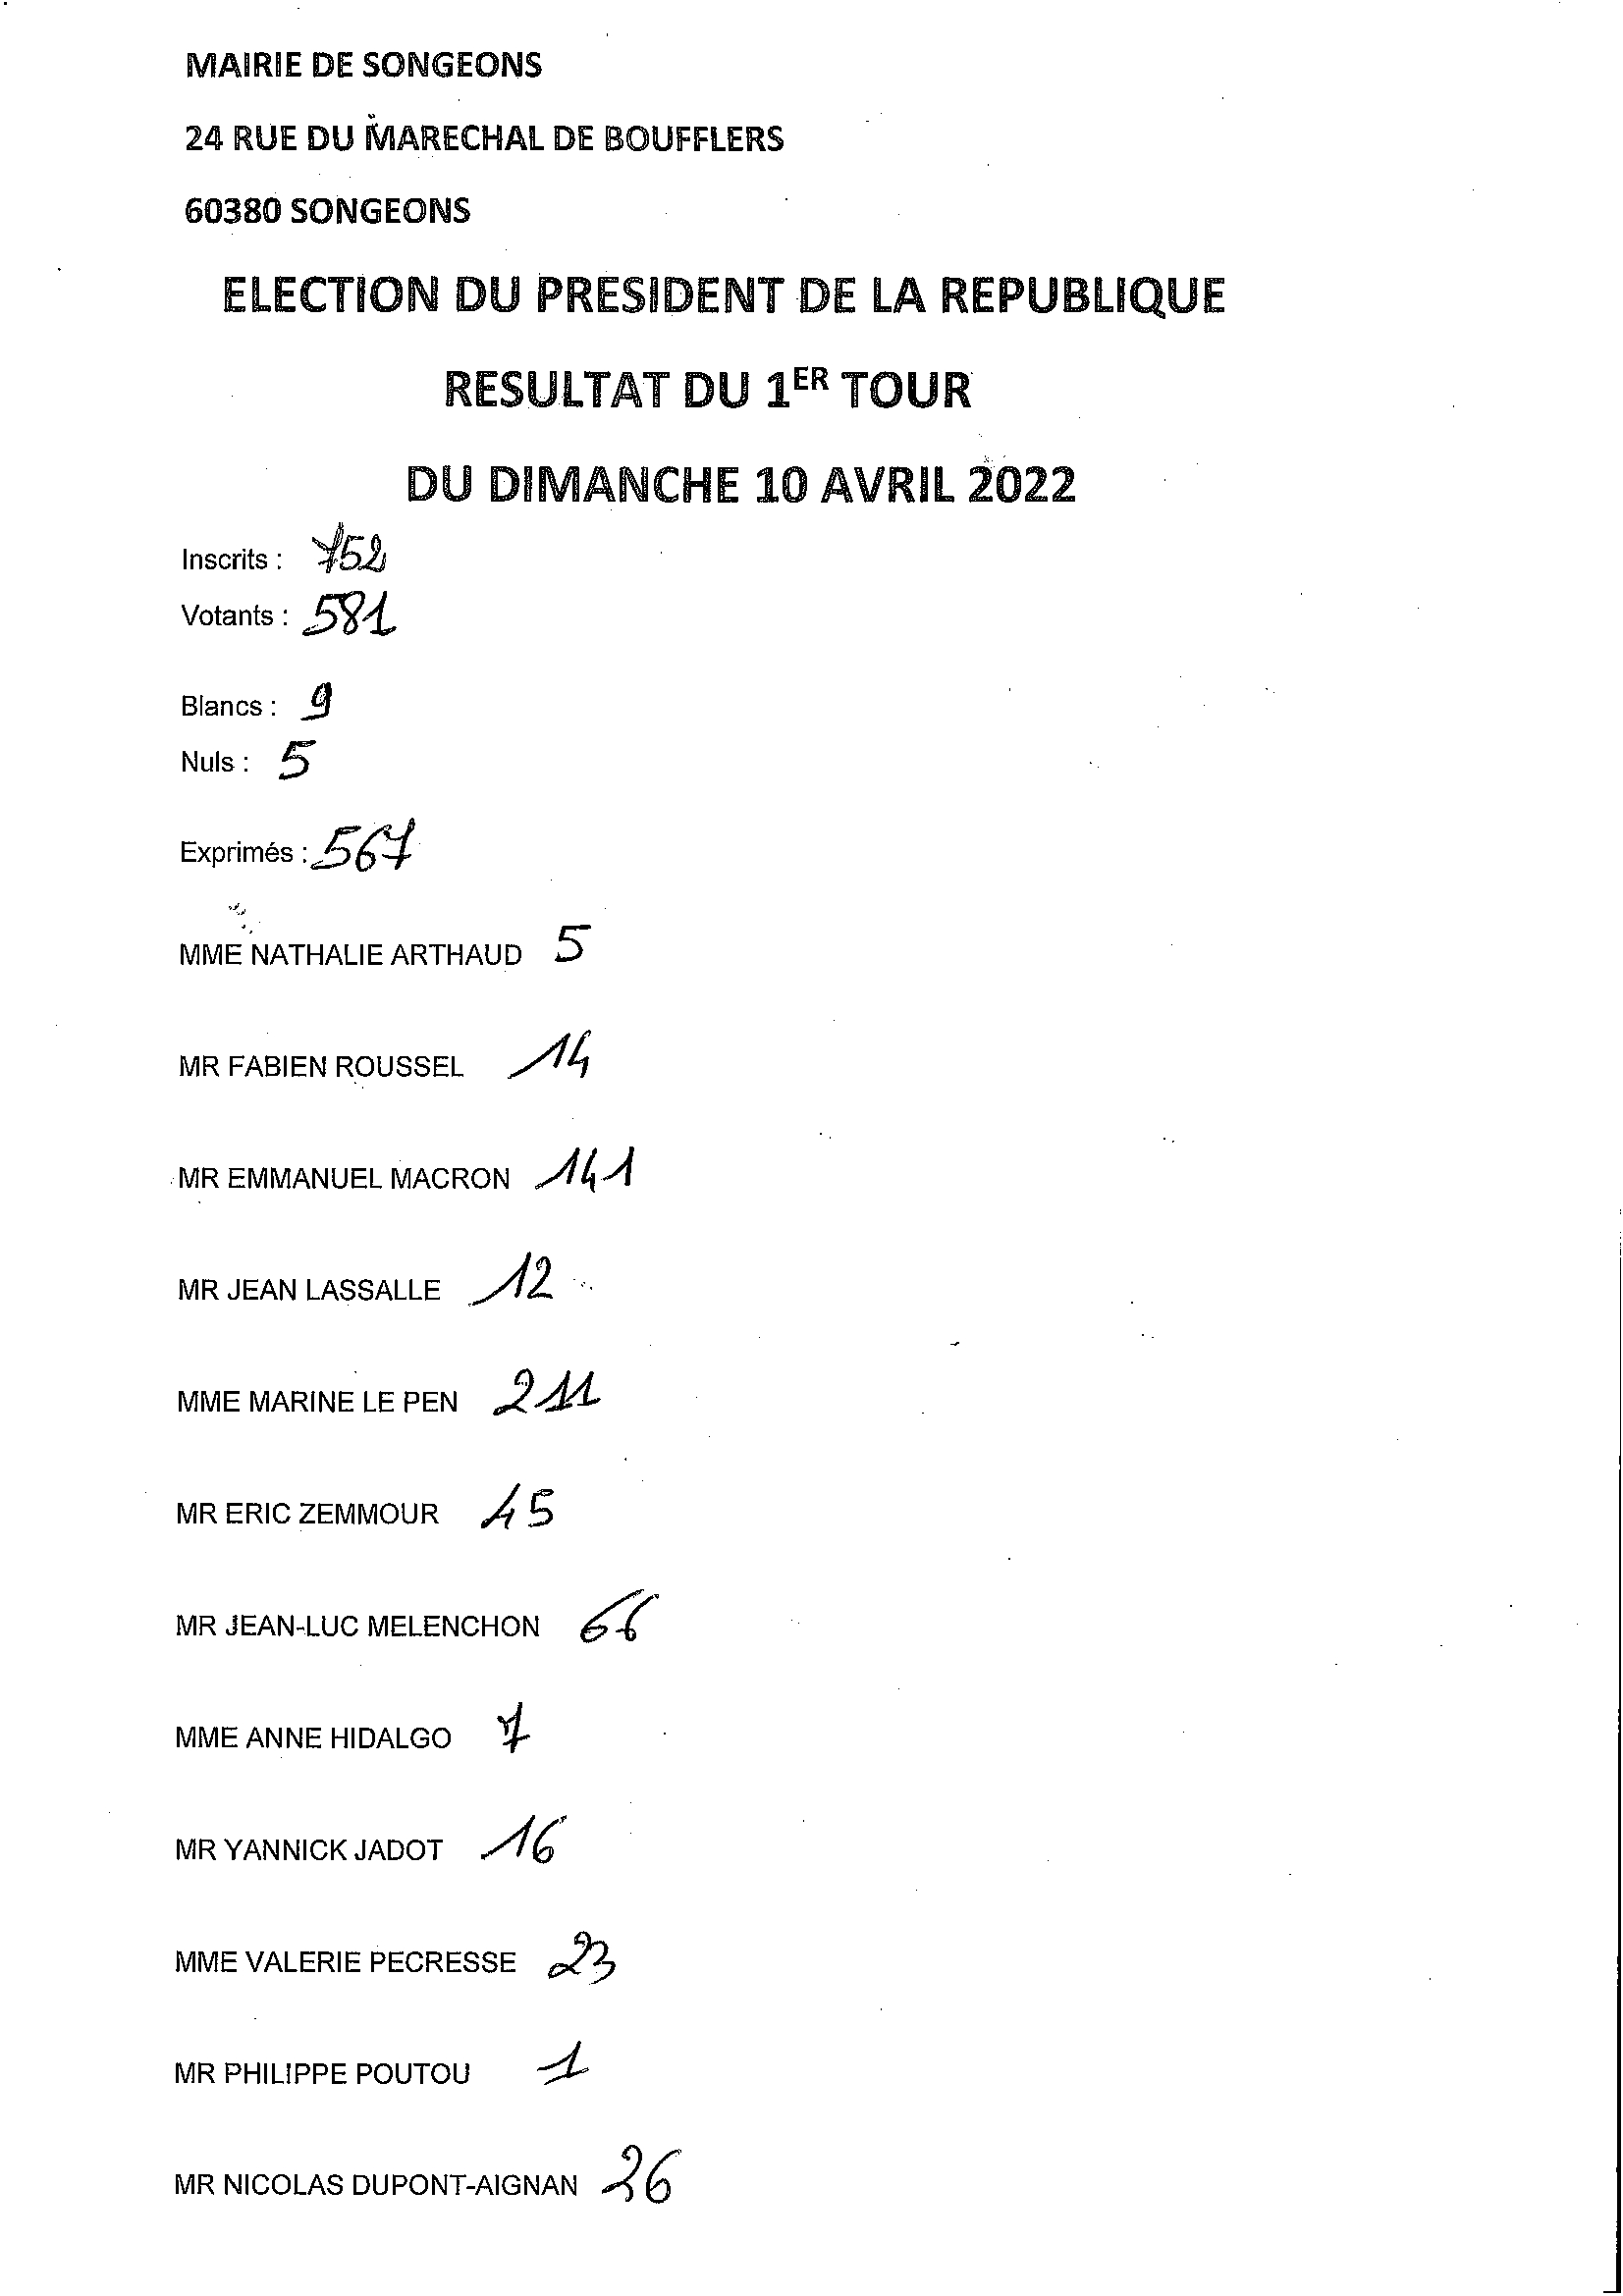 MAIRIE DE SONGEONS
24 RUE DU MARECHAL DE BOUFFLERS
60380 SONGEONS
ELECTION DU PRESIDENT DE LA REPUBLIQUE
RESULTAT DU 1ER TOUR
DU DIMANCHE 10 AVRIL 2022
Inscrits : 752
Votants : 581
Blancs : 9
Nuls : 5
Exprimés : 567
MME NATHALIE ARTHAUD 5
MR FABIEN ROUSSEL 14
MR EMMANUEL MACRON 141
MR JEAN LASSALLE 12
MME MARINE LE PEN 211
MR ERIC ZEMMOUR 45
MR JEAN-LUC MELENCHON 66
MME ANNE HIDALGO 7
MR YANNICK JADOT 16
MME VALERIE PECRESSE 23
MR PHILIPPE POUTOU 1
MR NICOLAS DUPONT-AIGNAN 26